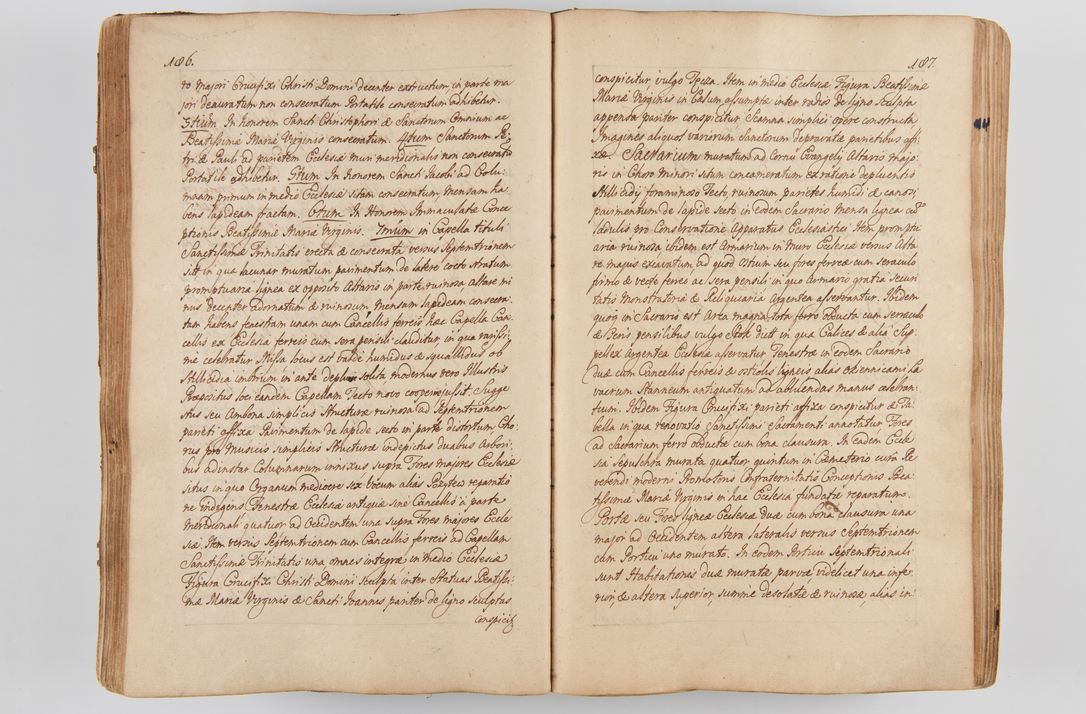 186.
ro majori Crucifixi Christi Domini decenter extructum, in parte ma
jori deauratum non consecratum Portatile consecratum adhibetur.
3tium. In honorem Sancti Christophori & Sanctorum Omnium ac
Beatissimæ Mariæ Virginis consecratum. 4tum Sanctorum Pe
tri & Pauli ad parietem Ecclesiæ muri meridionalis non consecratum
Portatile adhibetur. 5tum. In honorem Sancti Jacobi ad Colu
mnam primum in medio Ecclesiæ situm consecratum, mensam ha
bens lapideam fractam. 6tum. In Honorem Immaculatæ Conce
ptionis Beatissimæ Mariæ Virginis. 7mum in Capella tituli
Sanctissimæ Trinitatis erecta & consecrata versus Septemtrionem
sit in qua lacunar muratum pavimentum de latere cocto stratum
promptuaria lignea ex opposito Altaris in parte ruinosa Altare mi
nus decenter adornatum & ruinosum mensam lapideam consecra
tam habens fenestram unam cum Cancellis ferreis hæc Capella Can
cellis ex Ecclesia ferreis cum sera pensili clauditur in qua rarissi
me celebratur Missa locus est valde humidus & squallidus ob
stillicidia imbrium in ante deplui solita modernus vero Illustris
Præpositus loci eandem Capellam Tecto novo cooperiri jussit. Sugge
stus seu Ambona simplicis Structuræ ruinosa ad Septemtrionem
parieti affixa Pavimentum de lapide secto in parte distritum Cho
rus pro Musicis simplicis Structuræ indepictus duabus Arbori
bus ad instar Columnarum innixus supra Fores majores Ecclesiæ
situs in quo Organum mediocre sex vocum alias Pozytew reparatio
ne indigens Fenestræ Ecclesiæ antiquæ sine Cancellis à parte
meridionali quatuor ad Occidentem una supra Fores majores Eccle
siæ. Item versus Septemtrionem cum Cancellis ferreis ad Capellam
Sanctissimæ Trinitatis una omnes integræ in medio Ecclesiæ
Figura Crucifixi Christi Domini sculpta inter Statuas Beatissi
mæ Mariæ Virginis & Sancti Joannis pariter de ligno sculptas
conspicit
187.
conspicitur vulgo Tęcza. Item in medio Ecclesiæ Figura Beatissimæ
Mariæ Virginis in Cœlum assumptæ inter radios de ligno sculpta
appensa pariter conspicitur Scamna simplici opere constructa
Imagines aliquot variorum Sanctorum depravatæ parietibus affi
xæ. Sacrarium muratum ad Cornu Evangelij Altaris majo
ris in Choro Minori situm concameratum ex ratione depluentis
stillicidij foraminoso Tecto, ruinosum, parietes humidi & canosi,
pavimentum de lapide secto in eodem Sacrario mensa lignea cum
scidulis pro Conservatione Apparatus Ecclesiastici Item promptu
aria ruinosa ibidem est Armarium in muro Ecclesiæ versus Alta
re majus excavatum ad quod Ostium seu fores ferreæ cum seraculo
firmo & vecte ferreo ac sera pensili in quo Armario gratia securi
tatis Monstratria & Reliquiaria Argentea asservantur. Ibidem
quoq; in Sacrario est Arca magna tota ferro obducta cum seraculo
& seris pensilibus vulgo Skok dicit in qua Calices & alia Sup
pellex Argentea Ecclesiæ asservatur Fenestræ in eodem Sacrario
duæ cum Cancellis ferreis & ostiolis ligneis alias okiennicami La
vacrum Stanneum antiquatum ad abluendas manus celebran
tium. Ibidem Figura Crucifixi parieti affixa conspicitur & Ta
bella in qua renovatio Sanctissimi Sacramenti annotatur Fores
ad Sacrarium ferro obductæ cum bona clausura. In eadem Eccle
sia Sepulchra murata quatuor quintum in Cæmeterio cura Re
verendi moderni Promotoris Confraternitatis Conceptionis Bea
tissimæ Mariæ Virginis in hac Ecclesia fundatæ reparatum.
Portæ seu Fores ligneæ Ecclesiæ duæ cum bona clausura una
major ad Occidentem altera lateralis versus Septemtrionem
cum Porticu uno murato. In eodem Porticu Septemtrionali
sunt Habitationes duæ muratæ parvæ videlicet una infe
rior, & altera superior, summe desolatæ & ruinosæ, alias in